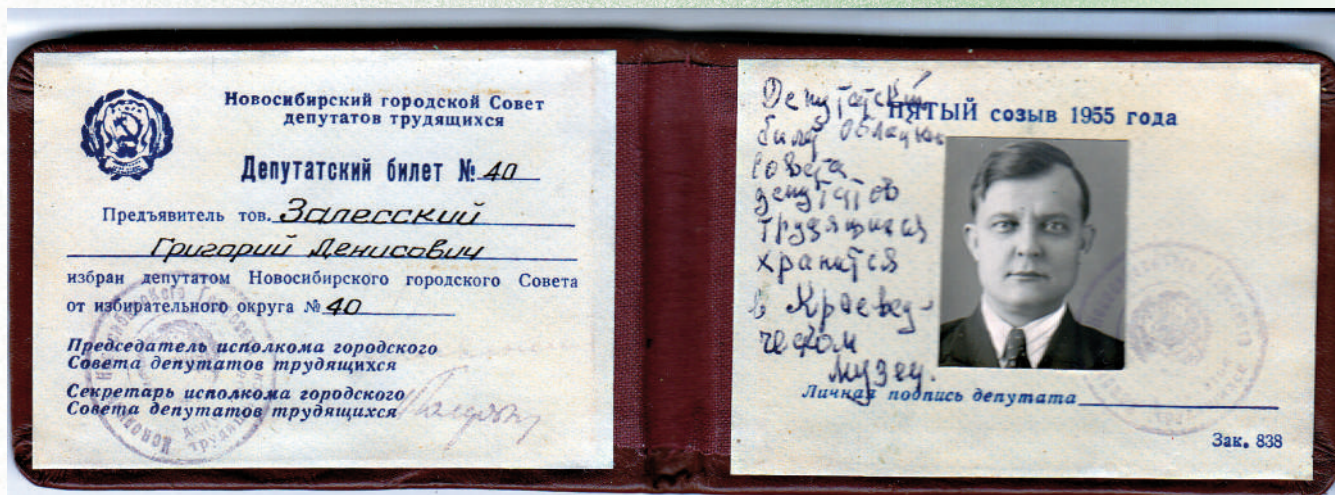 Новосибирский городской Совет
депутатов трудящихся
Депутатский билет № 40
Предъявитель тов. Залесский
Григорий Денисович
избран депутатом Новосибирского городского Совета
от избирательного округа № 40
Председатель исполкома городского
Совета депутатов трудящихся
Секретарь исполкома городского
Совета депутатов трудящихся
ПЯТЫЙ созыв 1955 года
Депутатский
билет
Совета
депутатов
трудящихся
хранится
в Краевед-
ческом
музеу.
Личная подпись депутата
Зак. 838